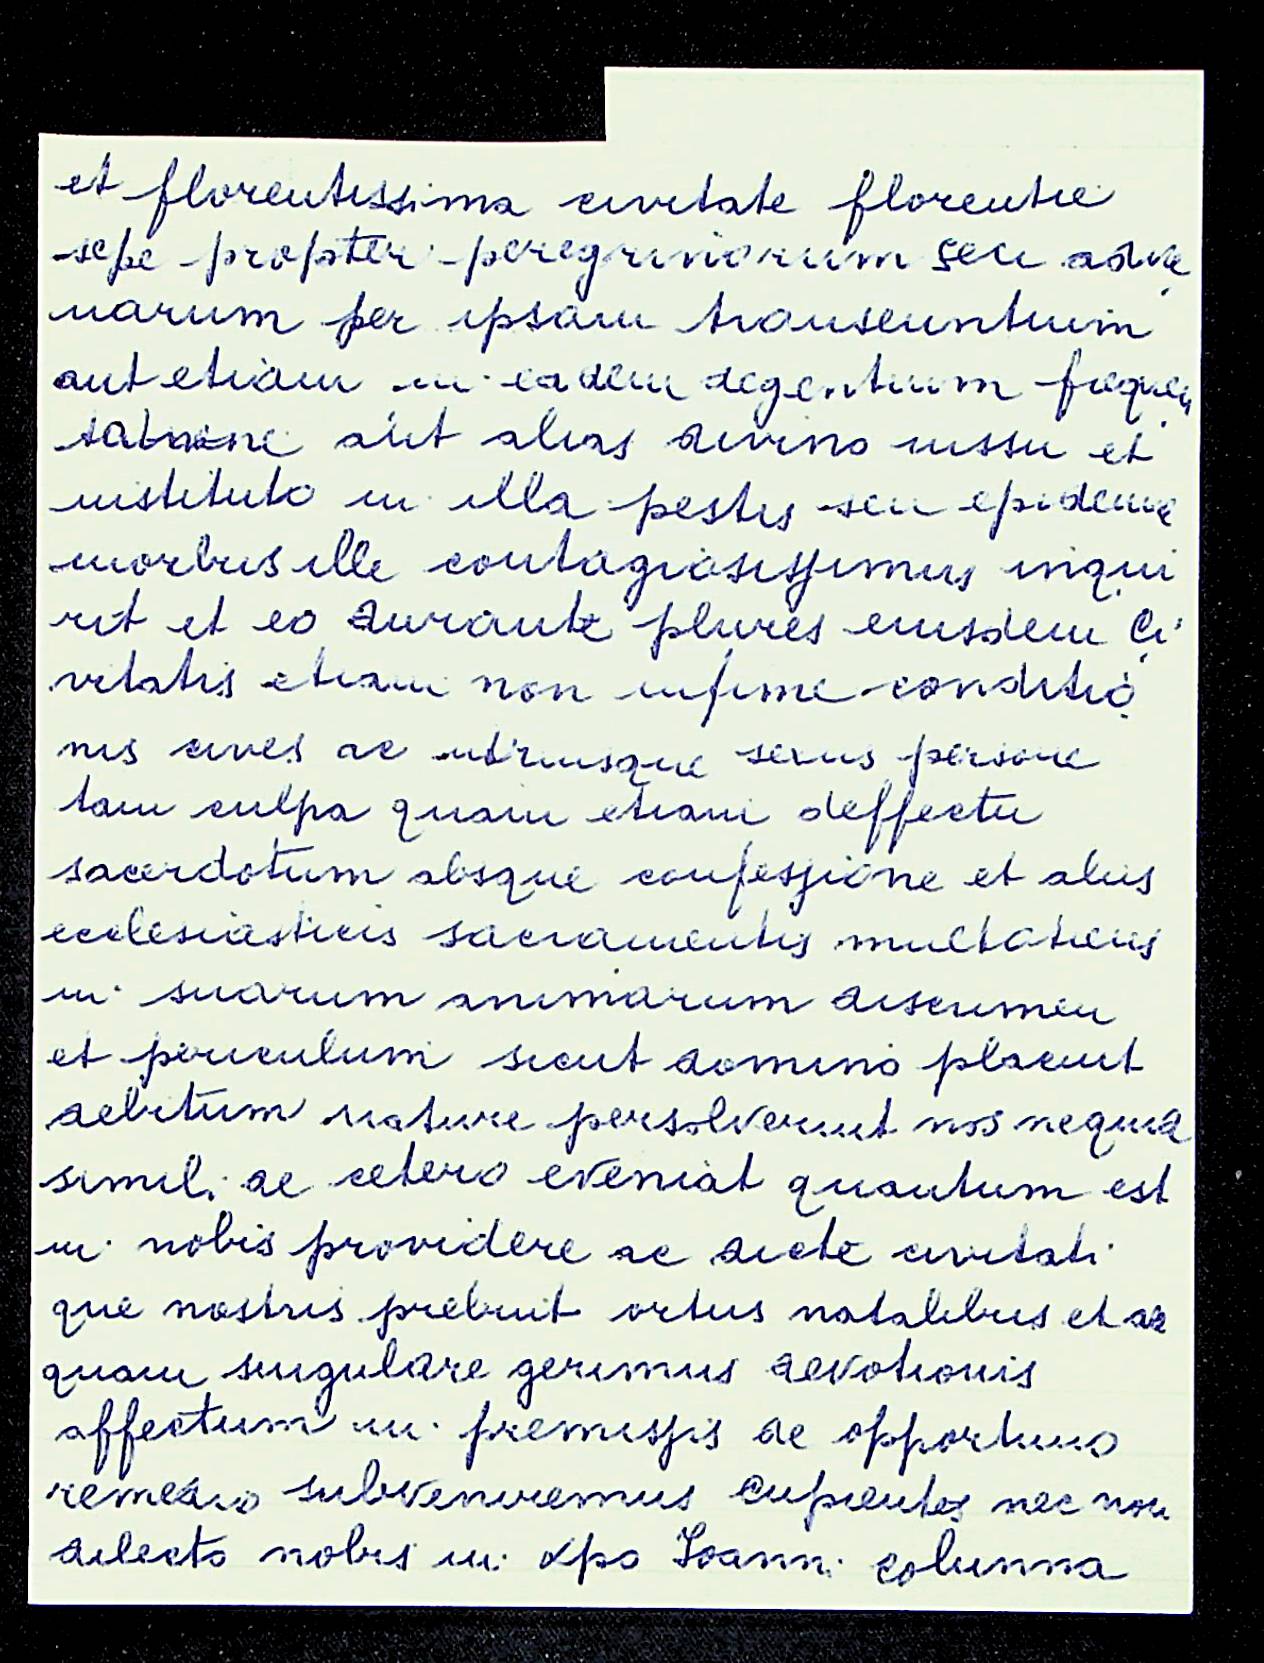 et florentissima civitate florentie
sepe propter peregrinorum seu adve
narum per ipsam transeuntium
aut etiam in eadem degentium frequen
tatione aut alias divino iussu et
instituto in illa pestis seu epidemie
morbus ille contagiosissimus inqui
rit et eo durante plures eiusdem Ci
vitatis etiam non infime conditio
nis cives ac utriusque sexus persone
tam culpa quam etiam deffectu
sacerdotum absque confessione et aliis
ecclesiasticis sacramentis multotiens
in suarum animarum discrimen
et periculum sicut domino placuit
debitum nature persolverunt nos nequid
simili de cetero eveniat quantum est
in nobis providere ac dicte civitati
que nostris prebuit ortus natalibus et ad
quam singulare gerimus devotionis
affectum in premissis de opportuno
remedio subveniremus cupientes nec non
dilecto nobis in xpo Joanni colunna